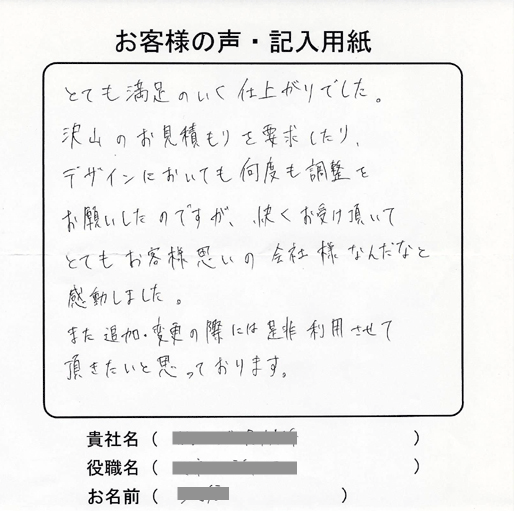 お客様の声・記入用紙
とても満足のいく仕上がりでした。
沢山のお見積もりを要求したり、
デザインにおいても何度も調整を
お願いしたのですが、快くお受け頂いて
とてもお客様思いの会社様なんだなと
感動しました。
また追加・変更の際には是非利用させて
頂きたいと思っております。
貴社名（　　　　　　）
役職名（　　　　　　）
お名前（　　　　　　）